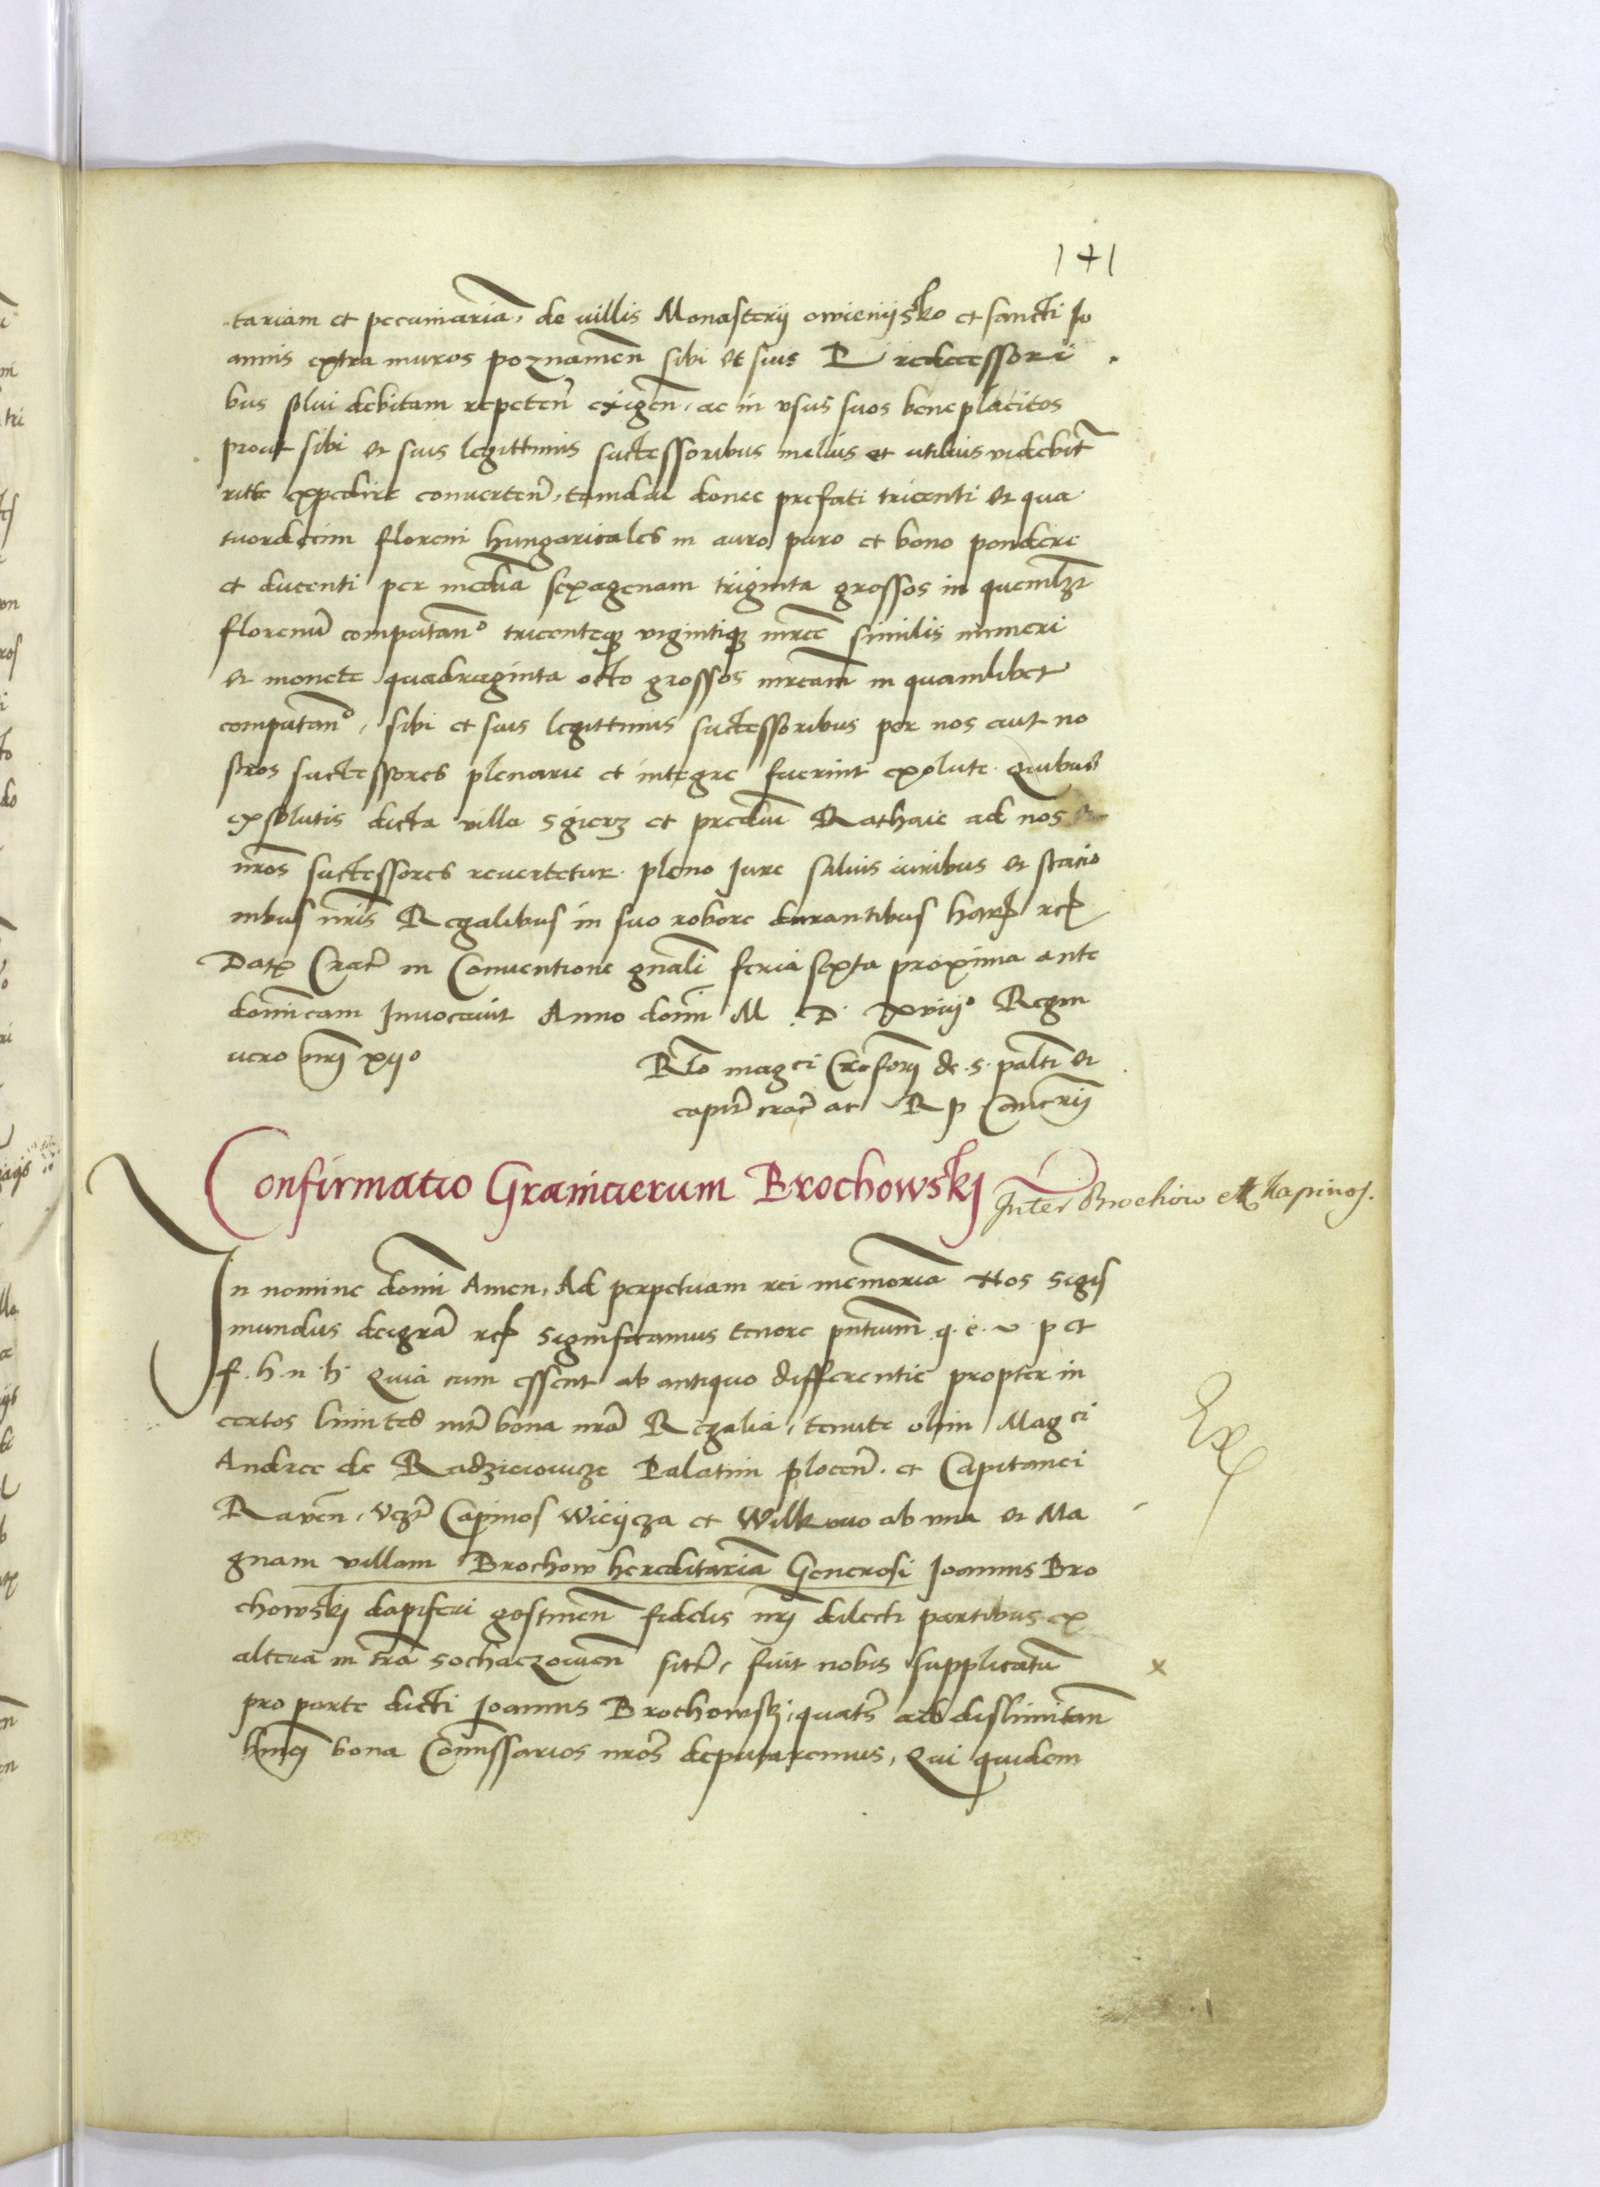 141
tariam et pecuniariã, de villis Monasterij owienijsko et sancti Jo
annis extra muros poznanieñ sibi et suis Predecessori
bus solui debitam repeteñ exigeñ, ac in vsus suos beneplacitos
prout sibi et suis legittimis successoribus melius et utilius videbitr
expedire converteñ, tamdiu donec prefati tricenti et qua
tuordecim floreni hungaricales in auro puro et bono pondere
et ducenti per mediã sexagenam triginta grossos in quemlzt
florenũ computanº tricenteqz vigintiqz mrce similis numeri
et monete quadraginta octo grossos mrcam in quamlibet
computanº, sibi et suis legittimis successoribus per nos aut no
stros successores plenarie et integre fuerint exolute Quibus
exsolutis dicta villa Sgierz et prediũ Rathaie ad nos et
nr̃os successores revertetur pleno Jure saluis iuribus et statio
nibus nr̃is Regalibus in suo robore durantibus harz rcz
Datz Crac̃ in Conventione gñali feria sexta proxima ante
dominicam Invocavit Anno domĩ M . D . xviijº Regni
vero nr̃i xijº
Rlo magci Crosforij de . S . palti et
capit̃ crac̃ ac R p Cancrij
Confirmatio Granicierum Brochowskj Inter Brochow et Kapinos.
In nomine domĩ Amen, Ad perpetuam rei memoriã Nos Sigis
mundus dei grã rcz Significamus tenore pñtium q . e . v . p et
f . h . n . h . Quia cum essent ab antiquo differentie propter in
certos limites intr̃ bona nr̃a Regalia, tenute olim Magci
Andree de Radzieiowicze Palatini ploceñ . et Capitanei
Raveñ, vzt̃ Capinos Wieijcza et Wilkowo ab vna et Ma
gnam villam Brochow hereditariã Generosi Joannis Bro
chowskj dapiferi gostineñ fidelis nr̃j dilecti partibus ex
altera in tr̃a Sochaczovieñ sit̃, fuit nobis supplicatũ
pro parte dicti Joannis Brochowskj, quat̃s ad dislimitañ
hmõi bona Comissarios nr̃os deputaremus, Qui quidem